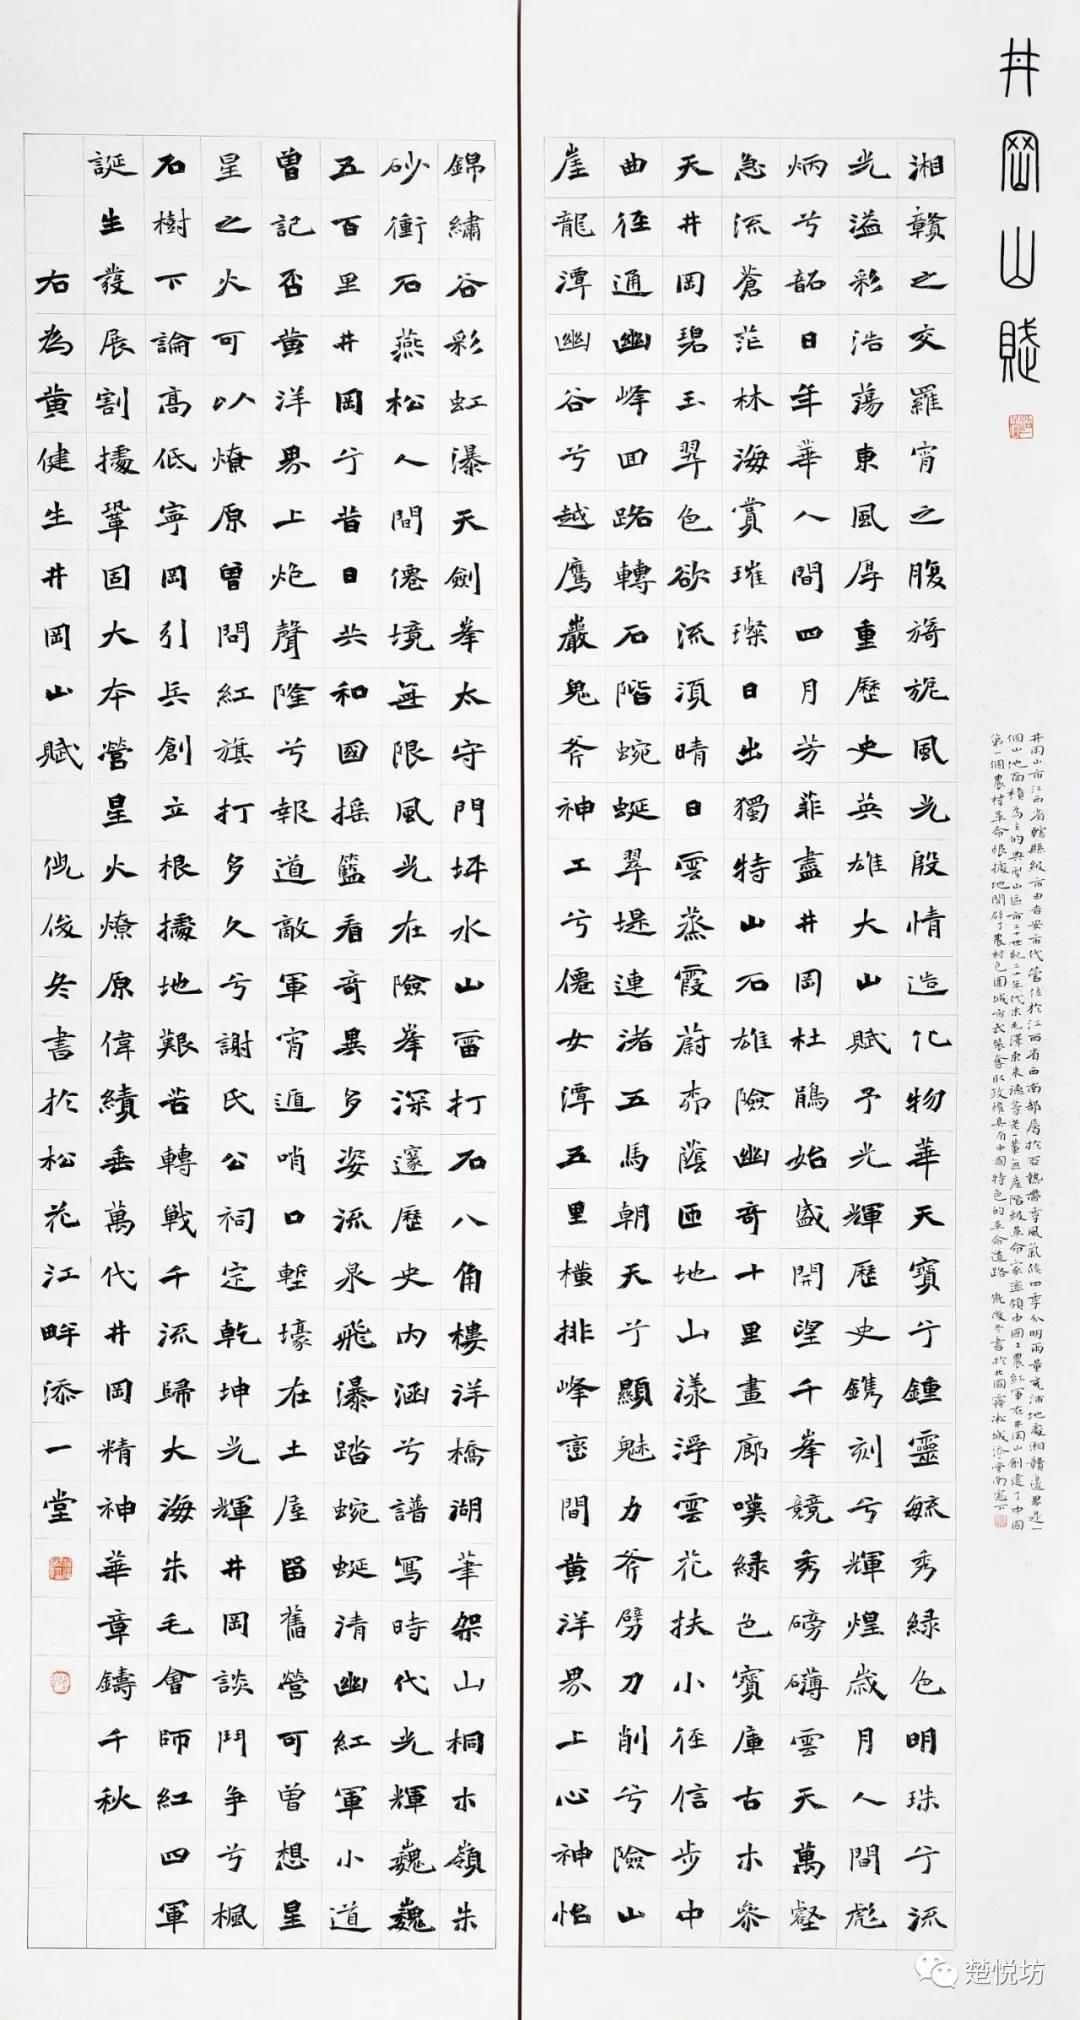 井岡山賦
湘贛之交羅宵之腹旖旎風光殷情造化物華天寶兮鍾靈毓秀綠色明珠兮流
光溢彩浩蕩東風厚重歷史英雄大山賦予光輝歷史鐫刻兮輝煌歲月人間彪
炳兮韶日年華人間四月芳菲盡井岡杜鵑始盛開望千峯競秀磅礴雲天萬壑
急流蒼茫林海賞璀璨日出獨特山石雄險幽奇十里畫廊嘆綠色寶庫古木參
天井岡碧玉翠色欲流須晴日雲蒸霞蔚布蔭匝地山漾浮雲花扶小徑信步中
曲徑通幽峰回路轉石階蜿蜒翠堤連渚五馬朝天兮顯魅力斧劈刀削兮險山
崖龍潭幽谷兮越鷹巖鬼斧神工兮僊女潭五里橫排峰巒間黃洋界上心神怡
錦繡谷彩虹瀑天劍峯太守門坪水山雷打石八角樓洋橋湖筆架山桐木嶺朱
砂衝石燕松人間僊境無限風光在險峯深邃歷史內涵兮譜寫時代光輝巍巍
五百里井岡兮昔日共和國搖籃看奇異多姿流泉飛瀑踏蜿蜒清幽紅軍小道
曾記否黃洋界上炮聲隆兮報道敵軍宵遁哨口塹壕在土屋留舊營可曾想星
星之火可以燎原曾問紅旗打多久兮謝氏公祠定乾坤光輝井岡談鬥爭兮楓
石樹下論高低寧岡引兵創立根據地艱苦轉戰千流歸大海朱毛會師紅四軍
誕生發展割據鞏固大本營星火燎原偉績垂萬代井岡精神華章鑄千秋
右為黃健生井岡山賦 侊俊冬書於松花江畔添一堂
井岡山市江西省轄縣級市由吉安市代管位於江西省西南部屬於亞熱帶季風氣候四季分明雨量充沛地處湘贛邊界是一
個山地面積為主的典型山區市二十世紀二十年代末毛澤東朱德等老一輩無產階級革命家率領中國工農紅軍在井岡山創建了中國
第一個農村革命根據地開辟了農村包圍城市武裝奪取政權具有中國特色的革命道路 侊俊冬書於北國霧凇城添堂南窗下
楚悦坊